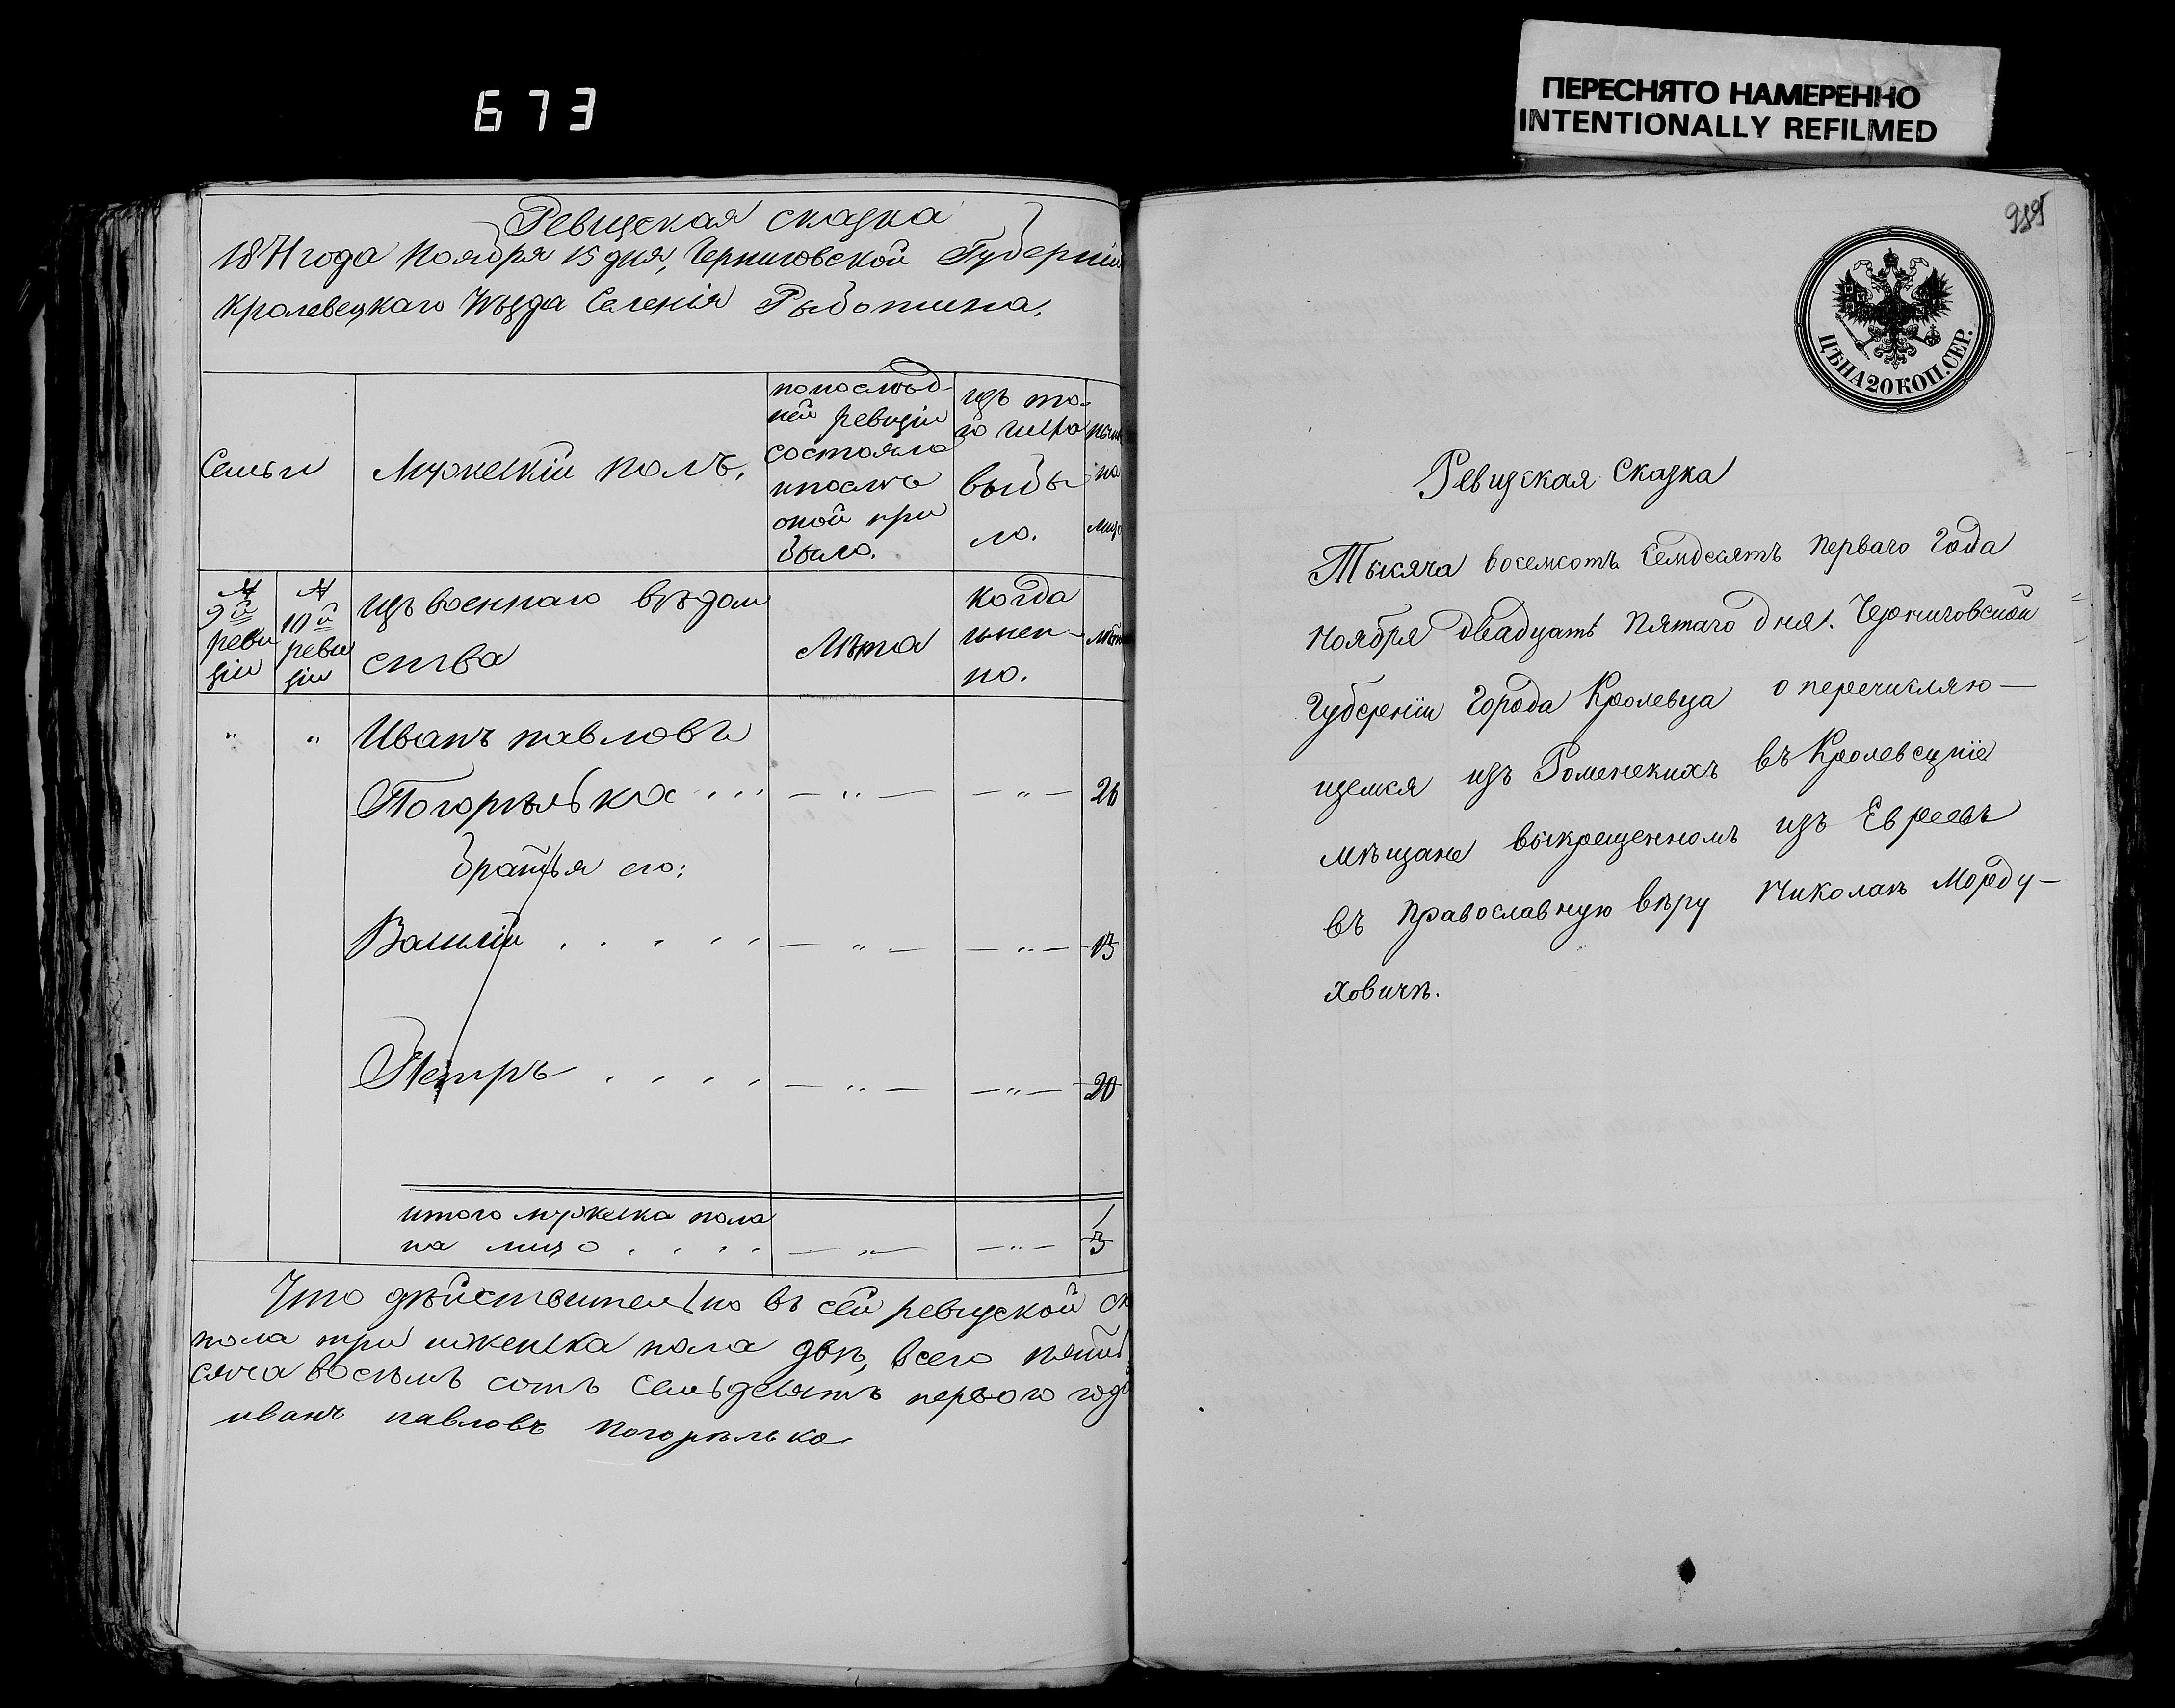 673
ПЕРЕСНЯТО НАМЕРЕННО
INTENTIONALLY REFILMED
Ревизская сказка
1871 года Ноября 15 дня, Черниговской Губерніи
Кролевецкаго Уѣзда Селенія Рыботина.
Семьи
Мужескій полъ.
попослѣд-
ней ревизіи
состояло
ипослѣ
оной при
было.
изъ то-
го числа
выбы
ло.
на
лицо
№
9й
реви
зіи
№
10й
реви
зіи
изъ военнаго вѣдом
ства
Лѣта
когда
имен-
но.
Лѣта
"
"
Иванъ павловъ
Погорѣлько . . . — " — — " — 26
братья его:
Василій . . . . . — " — — " — 13
Петръ . . . . — " — — " — 20
итого мужеска пола
на лицо . . . . — " — — " —
1
3
Что дѣйствительно въ сей ревизской ск
пола три иженска пола двѣ, всего пять
сяча восѣмь сотъ семьдесятъ первого года
иванъ павловъ погорѣлько
ЦѢНА 20 КОП. СЕР.
Ревизская Сказка
Тысяча восемсотъ семдесятъ перваго Года
Ноября двадцать Пятаго дня. Черниговской
Губерніи Города Кролевца о перечисляю—
щемся изъ Роменскихъ въ Кролевецкіе
мѣщане выкрещенномъ изъ Евреевъ
въ Православную вѣру Николаѣ Морду—
ховичѣ.